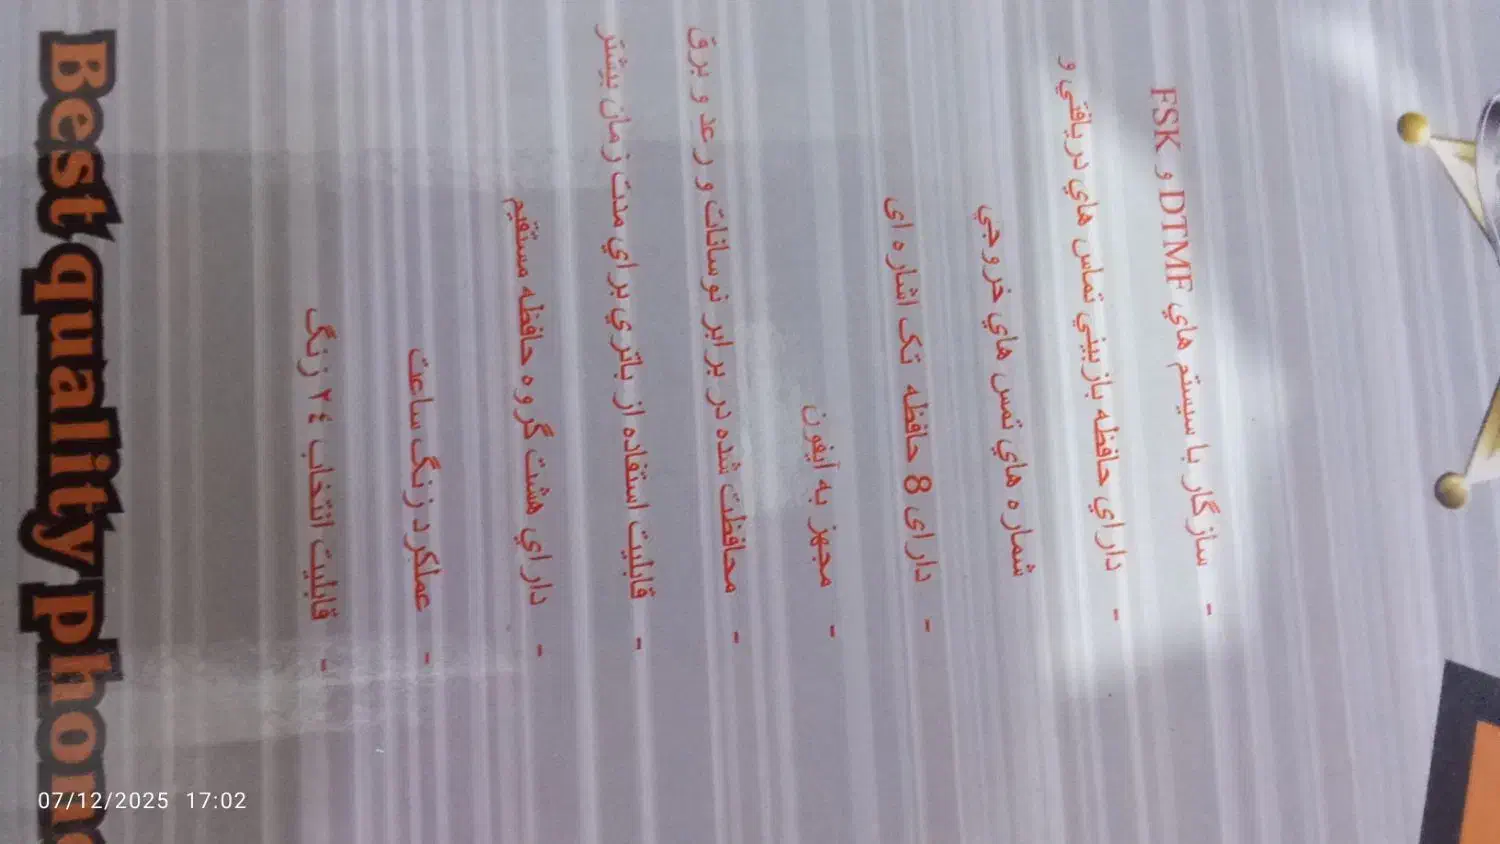 - سازگار با سيستم هاي DTMF و FSK
- داراي حافظه بازبيني تماس هاي دريافتي و
شماره هاي تمس هاي خروجي
- دارای 8 حافظه تک اشاره ای
- مجهز به آيفون
- محافظت شده در برابر نوسانات و رعد و برق
- قابليت استفاده از باتري براي مدت زمان بيشتر
- داراي هشت گروه حافظه مستقيم
- عملكرد زنگ ساعت
- قابليت انتخاب ٢٤ زنگ
Best quality phone
07/12/2025 17:02